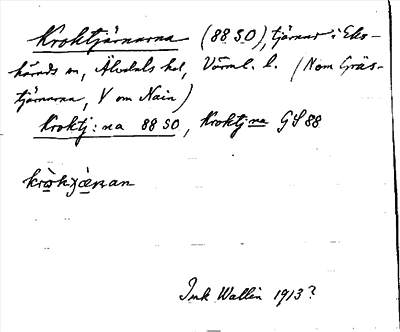 Kroktjärnarna (88 SO), tjärnar i Eks-
härads sn, Älvdals hd, Värml. l. (N om Gräs-
tjärnarna, V om Nain)
Kroktj:na 88 SO, Kroktjna GS 88
Ink Wallin 1913?